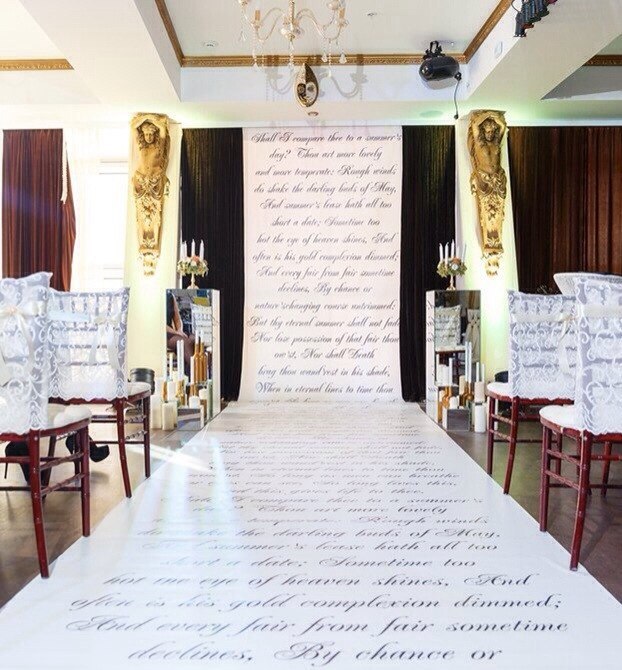 Shall I compare thee to a summer's
day? Thou art more lovely
and more temperate: Rough winds
do shake the darling buds of May,
And summer's lease hath all too
short a date; Sometime too
hot the eye of heaven shines, And
often is his gold complexion dimmed;
And every fair from fair sometime
declines, By chance or
nature'schanging course untrimmed;
But thy eternal summer shall not fade
Nor lose possession of that fair thou
Nor shall Death
brag thou wand'rest in his shade,
When in eternal lines to time thou
this gives life to thee.
to a summer's
day? Thou art more lovely
temperate: Rough winds
do shake the darling buds of May,
And summer's lease hath all too
short a date; Sometime too
hot the eye of heaven shines, And
often is his gold complexion dimmed;
And every fair from fair sometime
declines, By chance or